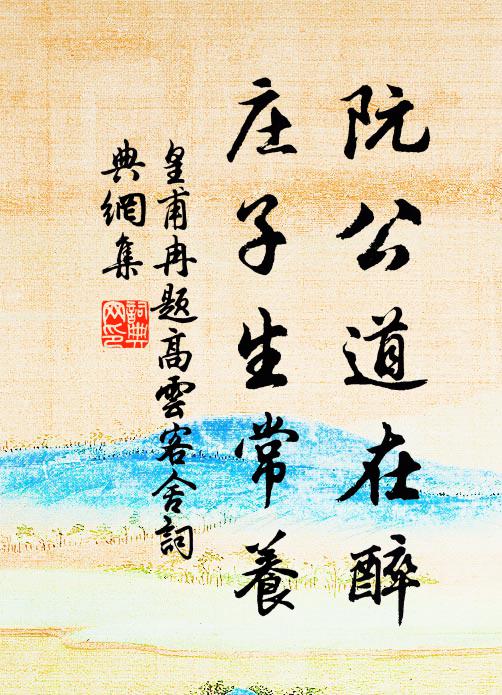 阮公道在醉
庄子生常養
皇甫冉題高雲客舍詞
典網集
詞典网印